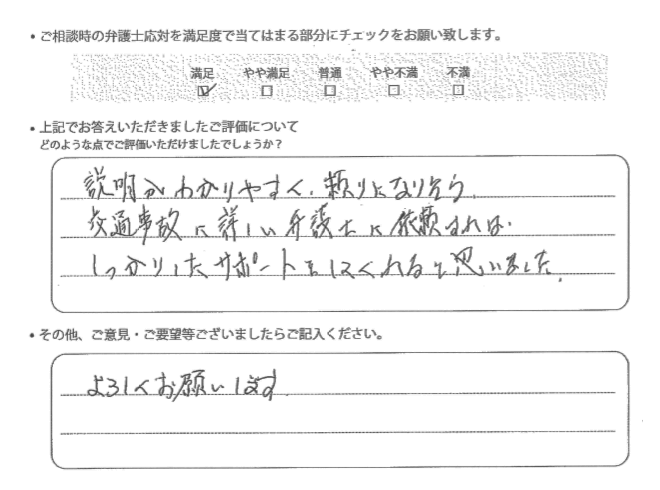 ・ご相談時の弁護士応対を満足度で当てはまる部分にチェックをお願い致します。
満足 やや満足 普通 やや不満 不満
☑ □ □ □ □
・上記でお答えいただきましたご評価について
どのような点でご評価いただけましたでしょうか？
説明がわかりやすく、頼りになりそう。
交通事故に詳しい弁護士に依頼すれば、
しっかりしたサポートをしてくれると思いました。
・その他、ご意見・ご要望等ございましたらご記入ください。
よろしくお願いします